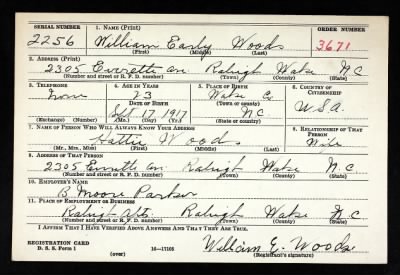 SERIAL NUMBER 1. NAME (Print) ORDER NUMBER
2256 William Early Woods 3671
(First) (Middle) (Last)
2. ADDRESS (Print)
2305 Everette Raleigh Wake N C
(Number and street or R. F. D. number) (Town) (County) (State)
3. TELEPHONE 4. AGE IN YEARS 5. PLACE OF BIRTH 6. COUNTRY OF CITIZENSHIP
None 23 Wake Co
DATE OF BIRTH (Town or county)
Sept 17 1917 N.C. U.S.A.
(Exchange) (Number) (Mo.) (Day) (Yr.) (State or country)
7. NAME OF PERSON WHO WILL ALWAYS KNOW YOUR ADDRESS 8. RELATIONSHIP OF THAT PERSON
Hattie Woods Wife
(Mr., Mrs., Miss) (First) (Middle) (Last)
9. ADDRESS OF THAT PERSON
2305 Raleigh Wake N.C
(Number and street or R. F. D. number) (Town) (County) (State)
10. EMPLOYER'S NAME
B. Moore Parker
11. PLACE OF EMPLOYMENT OR BUSINESS
Raleigh Raleigh Wake N.C
(Number and street or R. F. D. number) (Town) (County) (State)
I AFFIRM THAT I HAVE VERIFIED ABOVE ANSWERS AND THAT THEY ARE TRUE.
REGISTRATION CARD
D. S. S. Form 1 16—17105 William E. Woods
(over) (Registrant's signature)